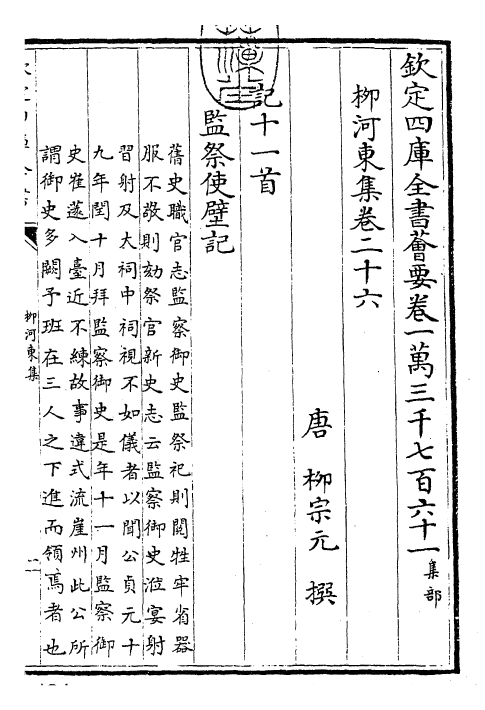 欽定四庫全書薈要卷一萬三千七百六十一集部
柳河東集卷二十六
唐 柳宗元 撰
記十一首
監祭使壁記
舊史職官志監察御史監祭祀則閱牲牢省器
服不敬則劾祭官新史志云監察御史涖宴射
習射及大祠中祠視不如儀者以聞公貞元十
九年閏十月拜監察御史是年十一月監察御
史崔薳入臺近不練故事違式流崖州此公所
謂御史多闕予班在三人之下進而領焉者也
柳河東集
一